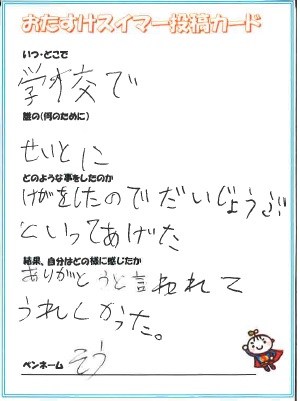 おたすけスイマー投稿カード
いつ・どこで
学校で
誰の(何のために)
せいとに
どのような事をしたのか
けがをしたのでだいじょうぶ
といってあげた
結果、自分はどの様に感じたか
ありがとうと言われて
うれしくかった。
ペンネーム そう